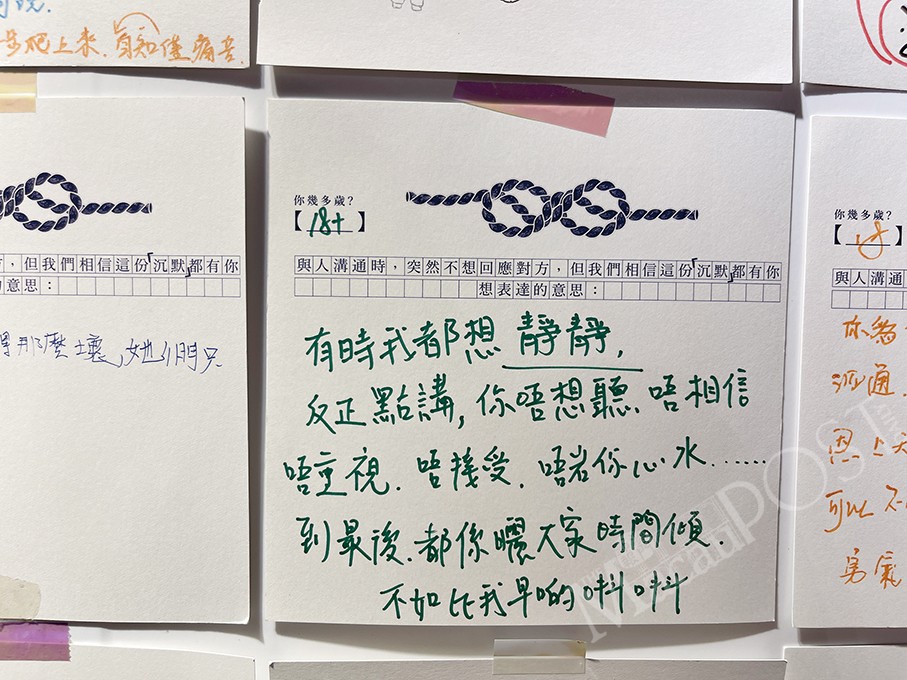 步爬上來.自知佳痛苦.
方，但我們相信這份「沉默」都有你
的意思：
那麼壞,她們只
你幾多歲？
【18+】
與人溝通時，突然不想回應對方，但我們相信這份「沉默」都有你
想表達的意思：
有時我都想靜靜，
反正點講，你唔想聽.唔相信
唔重視.唔接受.唔岩你心水……
到最後.都係曬大家時間傾.
不如比我早啲唞唞
你幾多歲？
【18】
與人溝通
可以不
勇氣